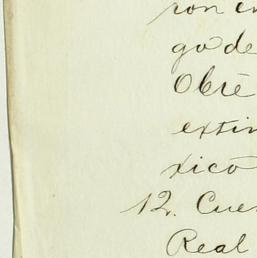 ron en
go de
Obre
extin
xico
12. Cue
Real